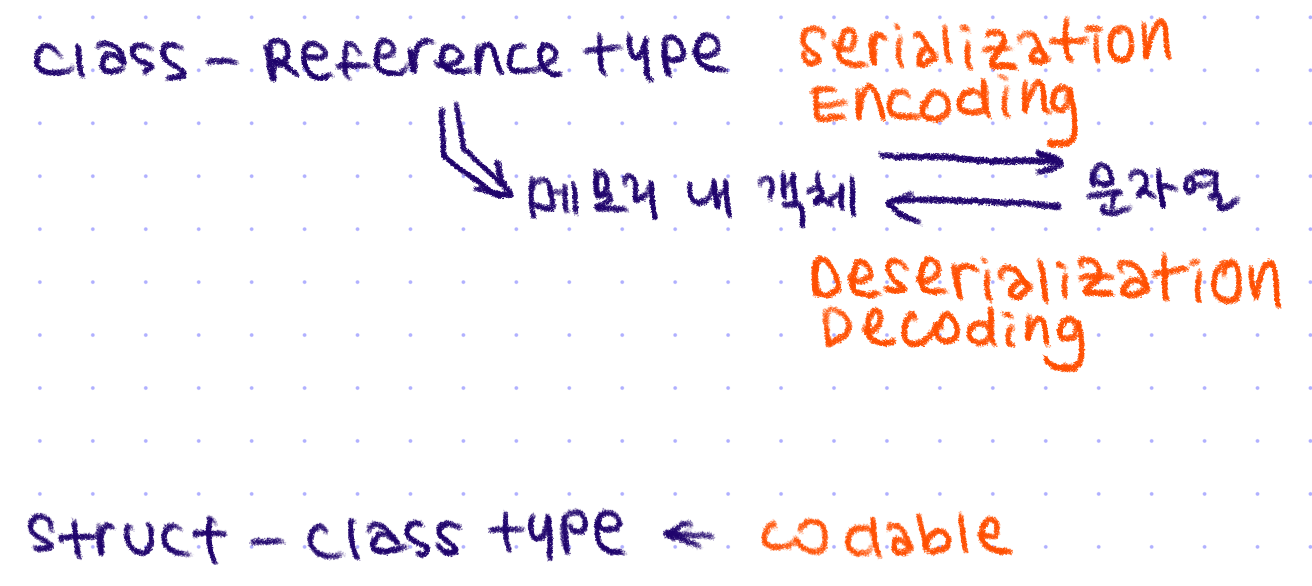 class - Reference type
serialization
Encoding
메모리 내 객체
문자열
Deserialization
Decoding
struct - class type ← codable